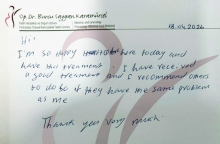 Op. Dr. Burcu Saygan Karamürsel
18.04.2024
Hi!
I'm so happy here today and
have this treatment. I have received
a good treatment and I recommend others
to do so if they have the same problem
as me
Thank you very much.